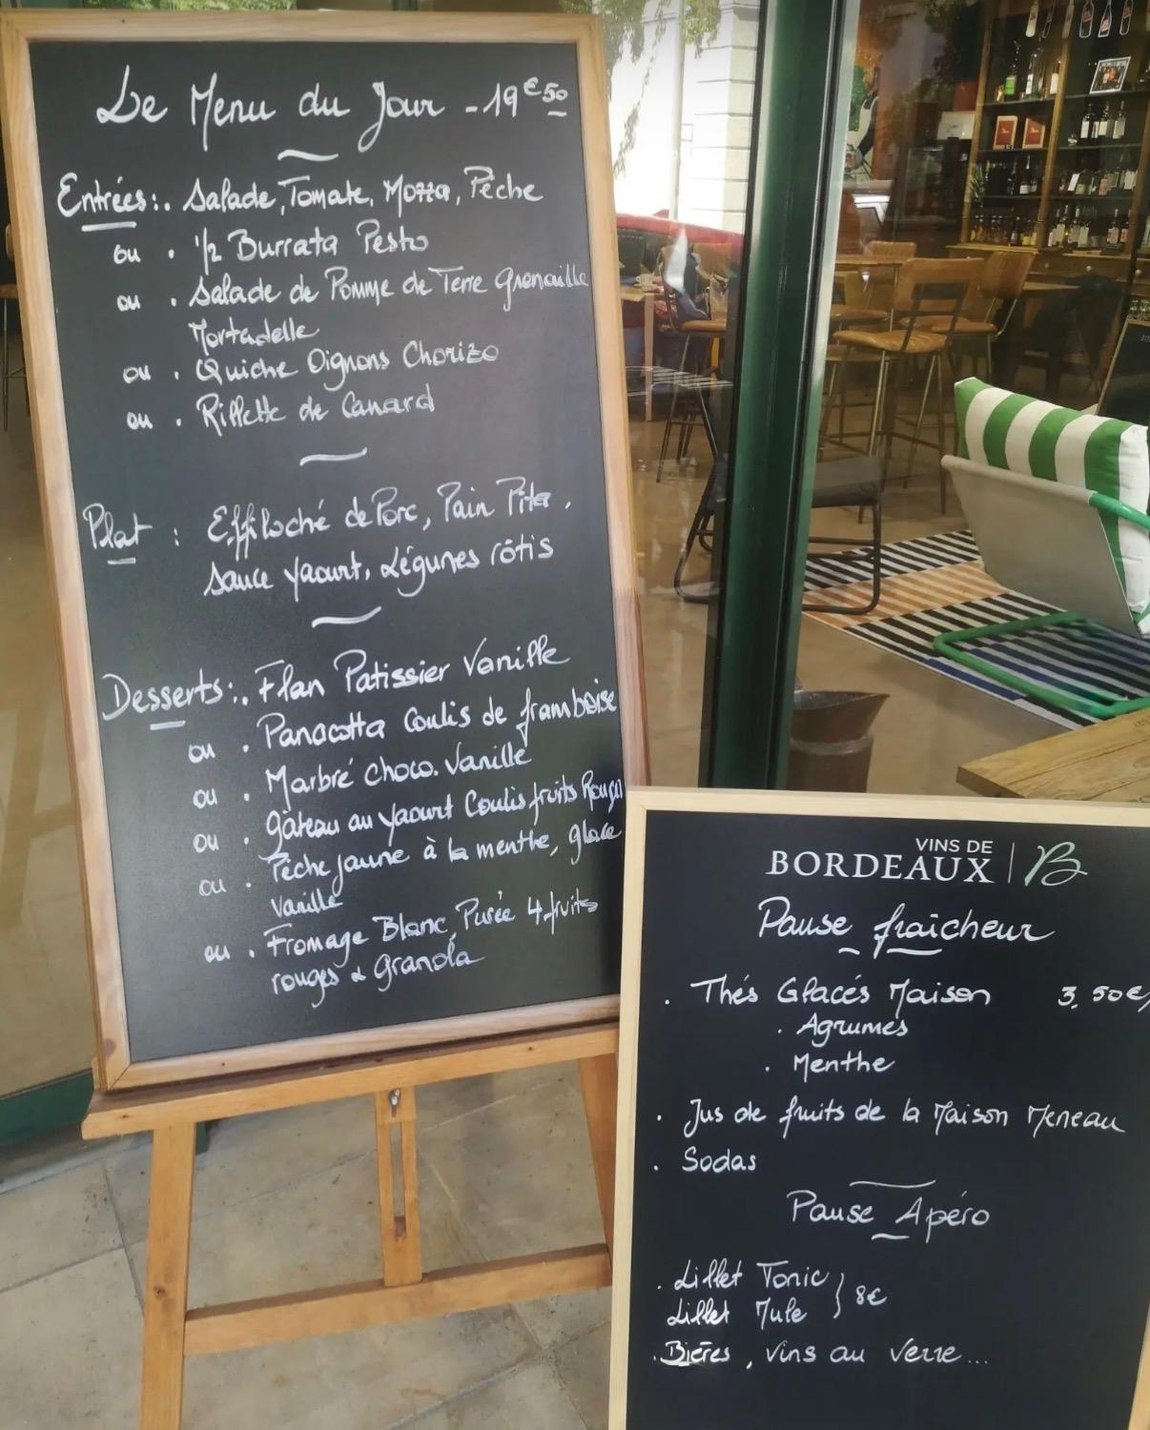 Le Menu du Jour - 19€50
Entrées: . Salade, Tomate, Mozza, Pêche
ou . 1/2 Burrata Pesto
ou . Salade de Pomme de Terre Grenaille
Mortadelle
ou . Quiche Oignons Chorizo
ou . Rillette de Canard
Plat : Effiloché de Porc, Pain Pita,
sauce yaourt, Légumes rôtis
Desserts: . Flan Patissier Vanille
ou . Panacotta Coulis de framboise
ou . Marbré choco. Vanille
ou . gâteau au yaourt Coulis fruits Rouges
ou . Pêche jaune à la menthe, glace
Vanille
ou . Fromage Blanc, Purée 4 fruits
rouges & Granola
VINS DE
BORDEAUX | B
Pause fraîcheur
. Thés Glacés Maison 3,50€
. Agrumes
. Menthe
. Jus de fruits de la Maison Meneau
. Sodas
Pause Apéro
. Lillet Tonic } 8€
Lillet Mule
. Bières, vins au verre...